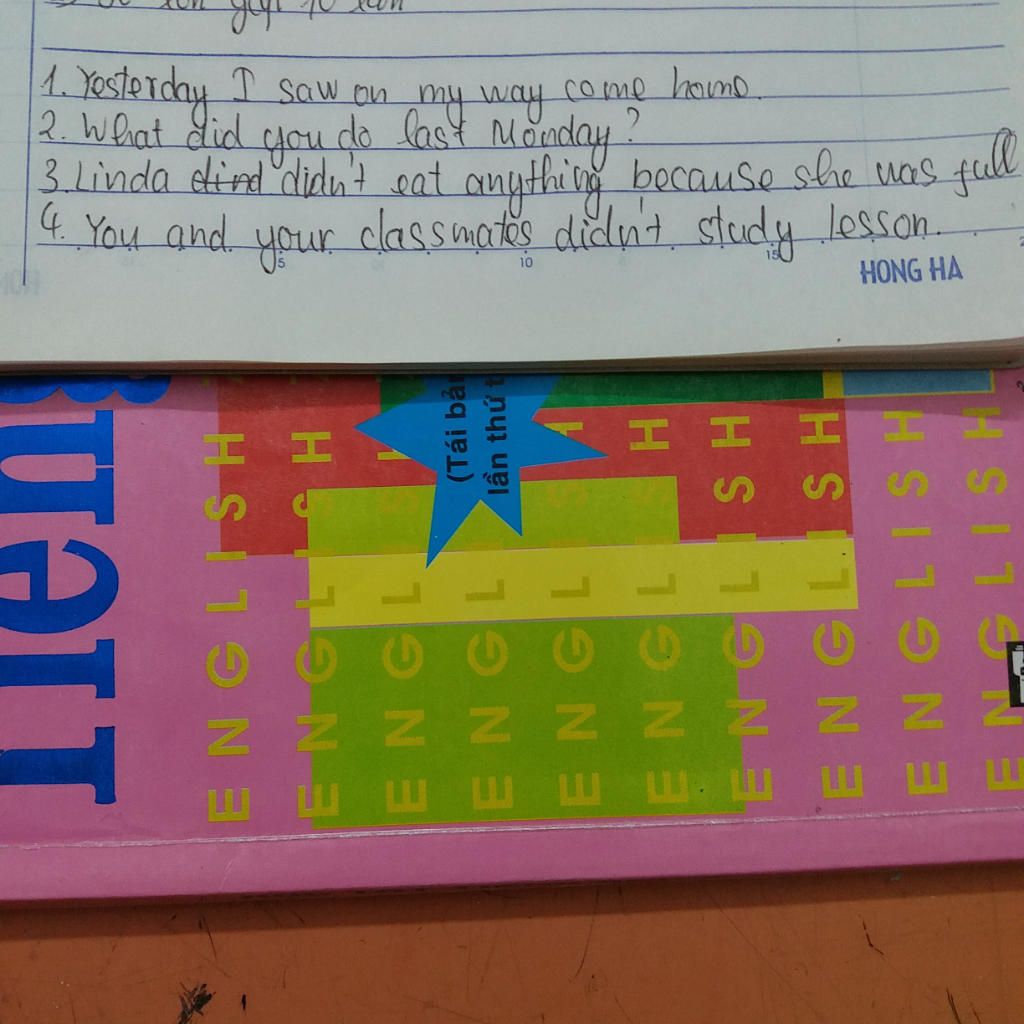 1. Yesterday I saw on my way come home.
2. What did you do last Monday?
3. Linda dind didn't eat anything because she was full
4. You and your classmates didn't study lesson.
5 10 15
HONG HA
(Tái bả
lần thứ t
ENGLISH
ENGLISH
ENGLISH
ENGLISH
ENGLISH
ENGLISH
ENGLISH
ENGLISH
ENGLISH
ENGLISH